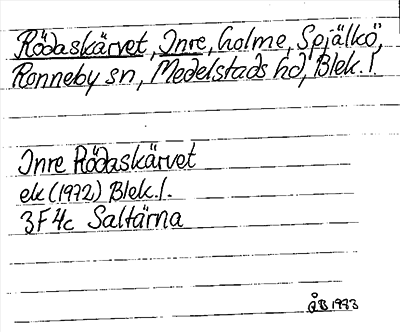 Rödaskärvet, Inre, holme, Spjälkö,
Ronneby sn, Medelstads hd, Blek. l.
Inre Rödaskärvet
ek (1972) Blek. l.
3F4c Saltärna
ÅB 1973